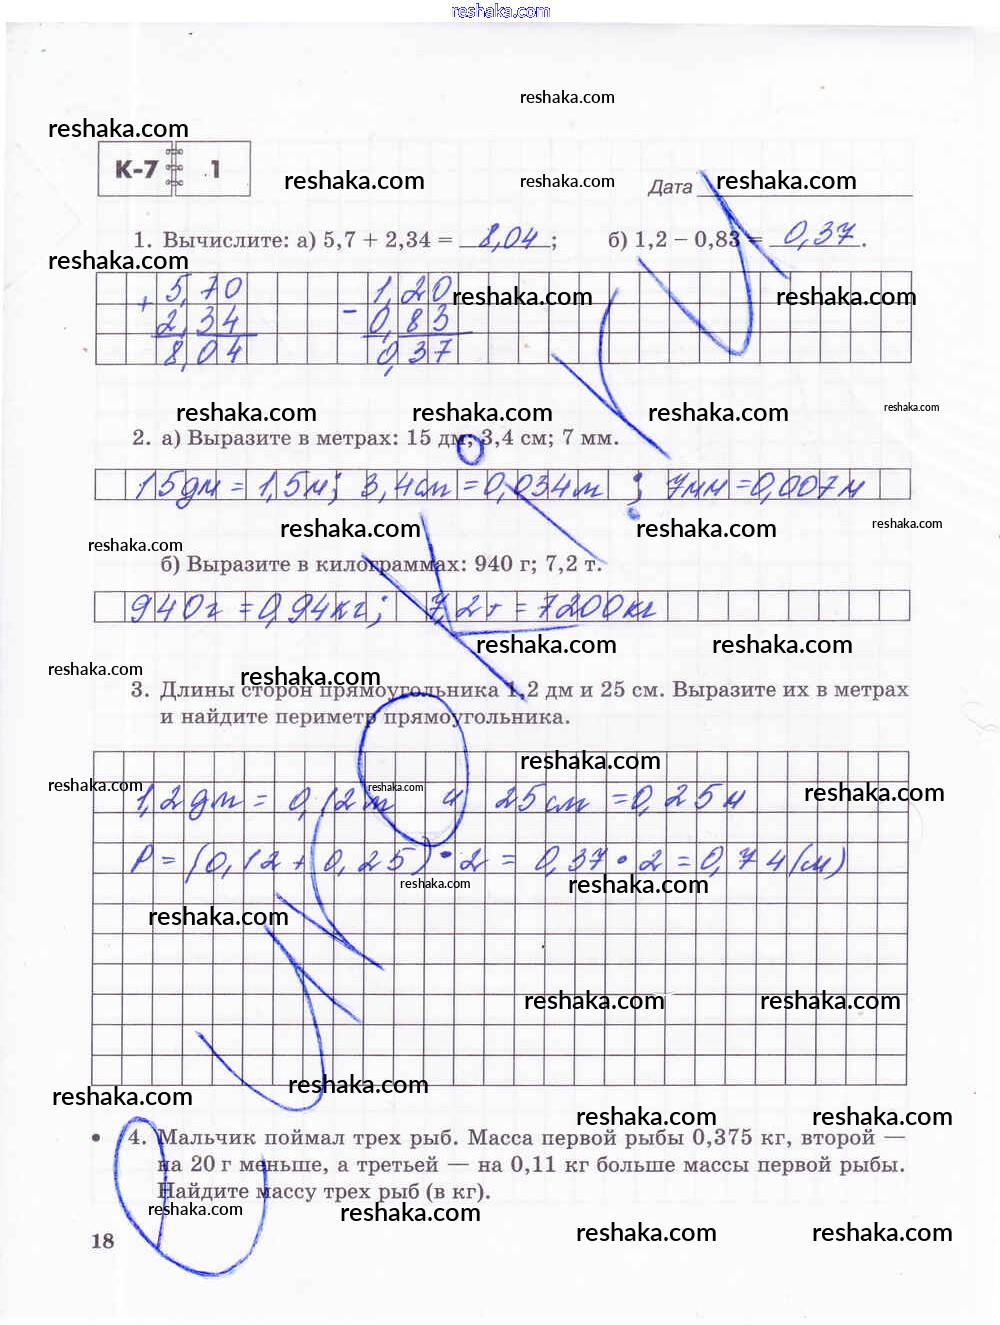 reshaka.com
reshaka.com
reshaka.com
К-7 1
reshaka.com reshaka.com Дата reshaka.com
1. Вычислите: а) 5,7 + 2,34 = 8,04; б) 1,2 – 0,83 = 0,37.
reshaka.com reshaka.com reshaka.com
5,70 1,20
reshaka.com reshaka.com
+ 2,34 - 0,83
8,04 0,37
reshaka.com reshaka.com reshaka.com reshaka.com
2. а) Выразите в метрах: 15 дм; 3,4 см; 7 мм.
15дм = 1,5м; 3,4см = 0,034м ; 7мм = 0,007м
reshaka.com reshaka.com reshaka.com
reshaka.com
б) Выразите в килограммах: 940 г; 7,2 т.
940г = 0,94кг; 7,2т = 7200кг
reshaka.com reshaka.com
reshaka.com reshaka.com
3. Длины сторон прямоугольника 1,2 дм и 25 см. Выразите их в метрах
и найдите периметр прямоугольника.
reshaka.com
reshaka.com reshaka.com reshaka.com
1,2дм = 0,12м и 25см = 0,25м
P = (0,12 + 0,25) • 2 = 0,37 • 2 = 0,74(м)
reshaka.com reshaka.com
reshaka.com
reshaka.com reshaka.com
reshaka.com reshaka.com
reshaka.com reshaka.com
• 4. Мальчик поймал трех рыб. Масса первой рыбы 0,375 кг, второй —
на 20 г меньше, а третьей — на 0,11 кг больше массы первой рыбы.
Найдите массу трех рыб (в кг).
reshaka.com reshaka.com
reshaka.com reshaka.com
18